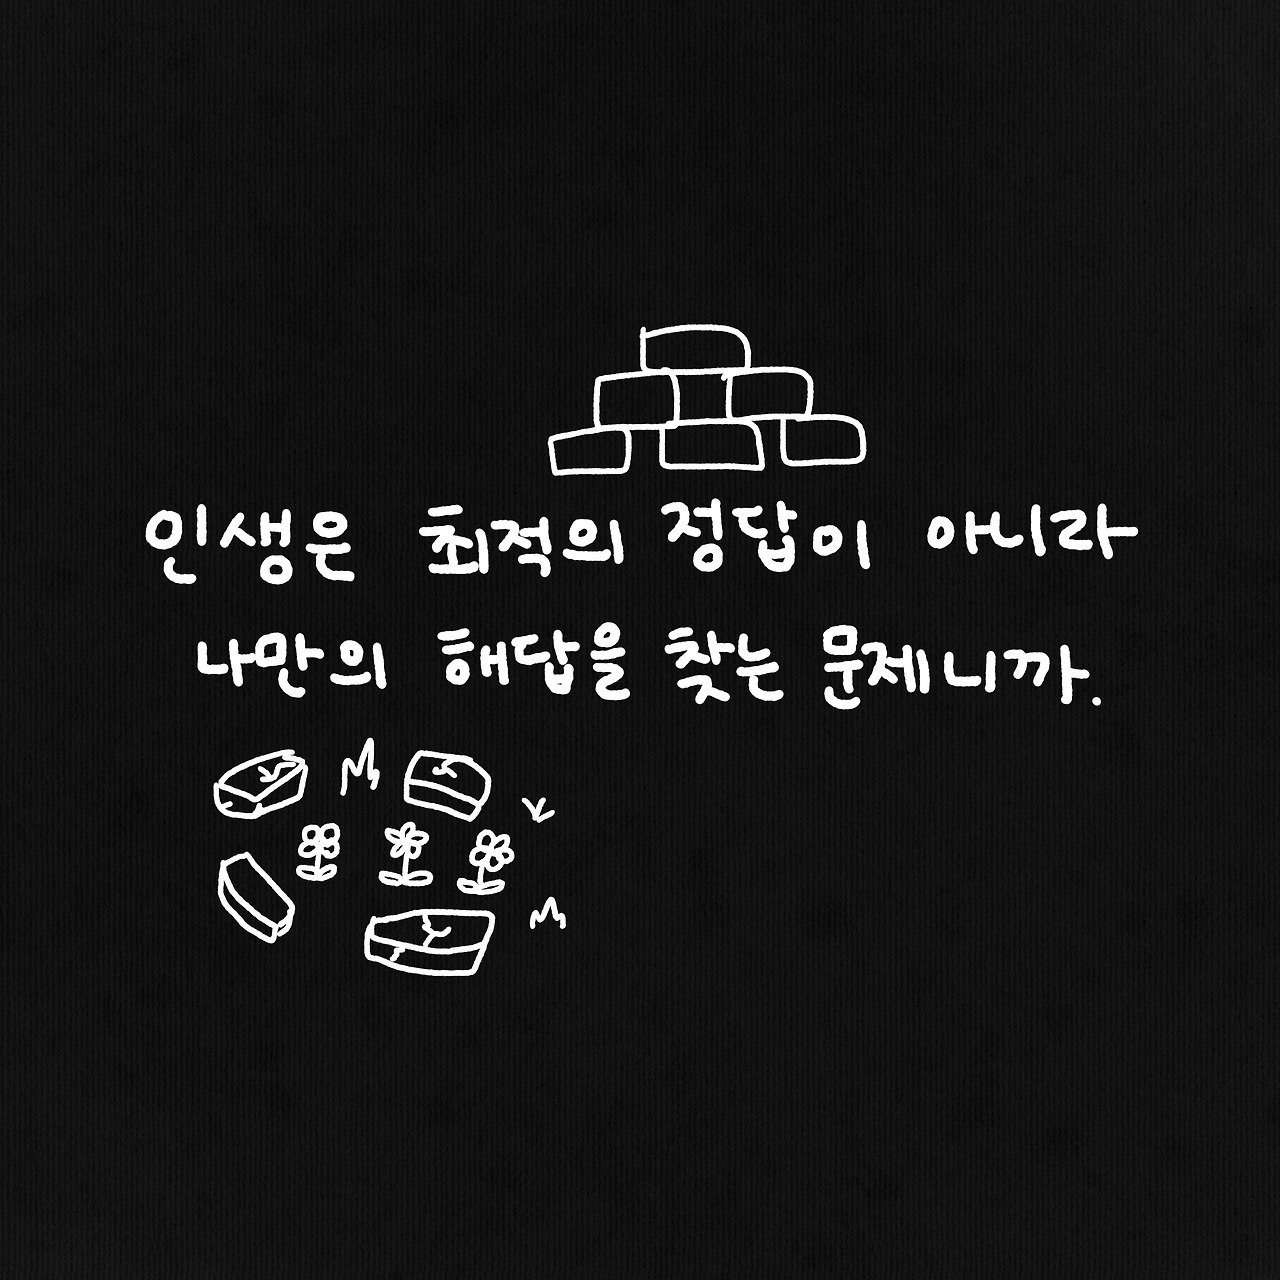 인생은 최적의 정답이 아니라
나만의 해답을 찾는 문제니까.